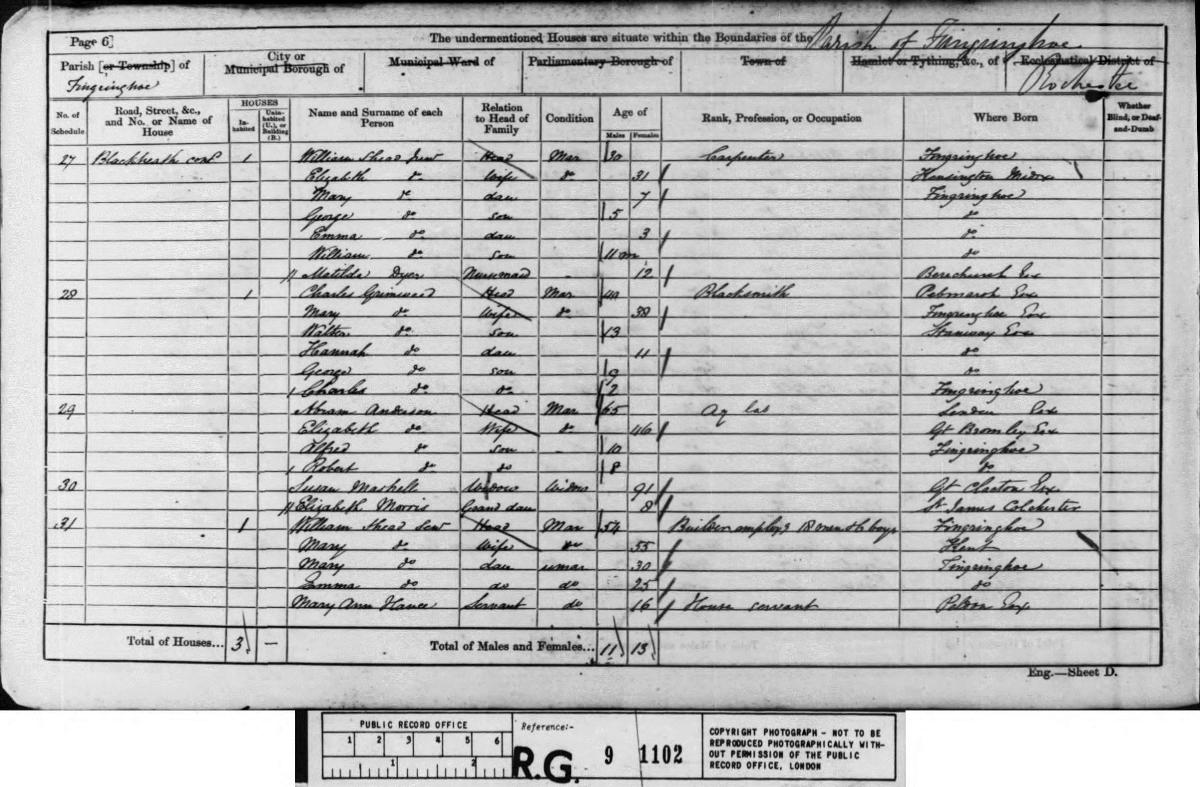 Page 6]
The undermentioned Houses are situate within the Boundaries of the Parish of Fingringhoe
Parish [or Township] of Fingringhoe
City or Municipal Borough of
Municipal Ward of
Parliamentary Borough of
Town of
Hamlet or Tything, &c., of
Ecclesiastical District of Rochester
No. of Schedule
Road, Street, &c., and No. or Name of House
HOUSES
Inhabited
Uninhabited (U.), or Building (B.)
Name and Surname of each Person
Relation to Head of Family
Condition
Age of
Males Females
Rank, Profession, or Occupation
Where Born
Whether Blind, or Deaf-and-Dumb
27 Blackheath 1 William Shead Jun Head Mar 30 Carpenter Fingringhoe
Elizabeth do Wife do 31 Kensington Midx
Mary do dau 7 Fingringhoe
George do son 5 do
Emma do dau 3 do
William do son 11 m do
Matilda Dyer Nursmaid 12 Berechurch Esx
28 1 Charles Grimwood Head Mar 40 Blacksmith Pebmarsh Esx
Mary do Wife do 38 Fingringhoe Esx
Walter do son 13 Stanway Esx
Hannah do dau 11 do
George do son 9 do
Charles do do 2 Fingringhoe
29 Abram Anderson Head Mar 65 Ag lab Esx
Elizabeth do Wife do 46 Gt Bromley Esx
Alfred do son 10 Fingringhoe
Robert do do 8 do
30 Susan Maskell Widow Widow 91 Gt Clacton Esx
Elizabeth Morris Grand dau 8 St James Colchester
31 1 William Shead Sen Head Mar 54 Builder employg 18 men & 6 boys Fingringhoe
Mary do Wife do 55 Kent
Mary do dau unmar 30 Fingringhoe
Emma do do do 25 do
Mary Ann Servant do 16 House servant Peldon Esx
Total of Houses... 3 —
Total of Males and Females... 11 13
Eng.—Sheet D.
PUBLIC RECORD OFFICE
1 2 3 4 5 6
1 2
Reference:-
R.G. 9 1102
COPYRIGHT PHOTOGRAPH - NOT TO BE
REPRODUCED PHOTOGRAPHICALLY WITH-
OUT PERMISSION OF THE PUBLIC
RECORD OFFICE, LONDON